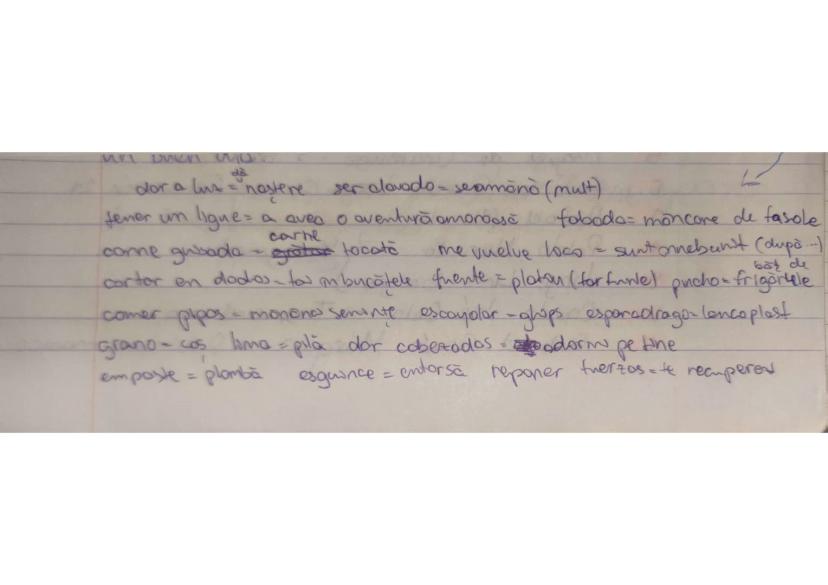 un buen
dar a luz = dă naștere ser clavado = seamănă (mult)
tener un ligue = a avea o aventură amoroasă fabada = mâncare de fasole
carne guisada = carne tocată me vuelve loco = sunt înnebunit (după ...)
cortar en dados = tai în bucățele fuente = platou (farfurie) pincho = băț de frigăruie
comer pipas = mănânc semințe escayolar = ghips esparadrapo = leucoplast
grano = coș lima = pilă dar cabezadas = adormi pe tine
empaste = plombă esguince = entorsă reponer fuerzas = te recuperezi